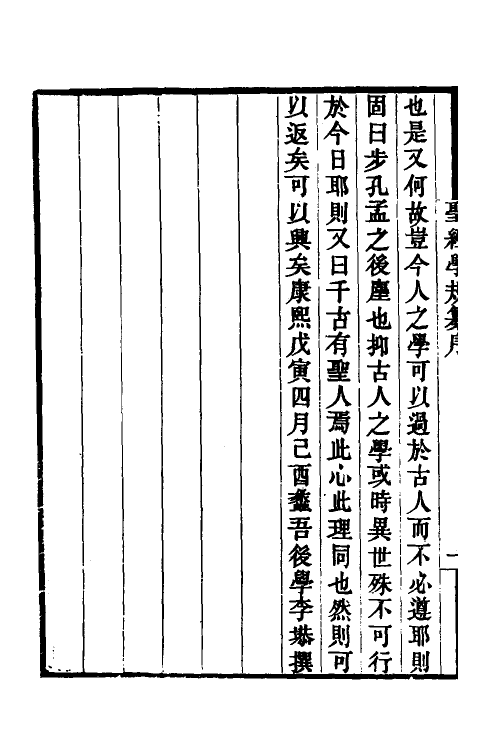 聖經學規纂序
一
也是又何故豈今人之學可以過於古人而不必遵耶則
固曰步孔孟之後塵也抑古人之學或時異世殊不可行
於今日耶則又曰千古有聖人焉此心此理同也然則可
以返矣可以興矣康熙戊寅四月己酉蠡吾後學李塨撰